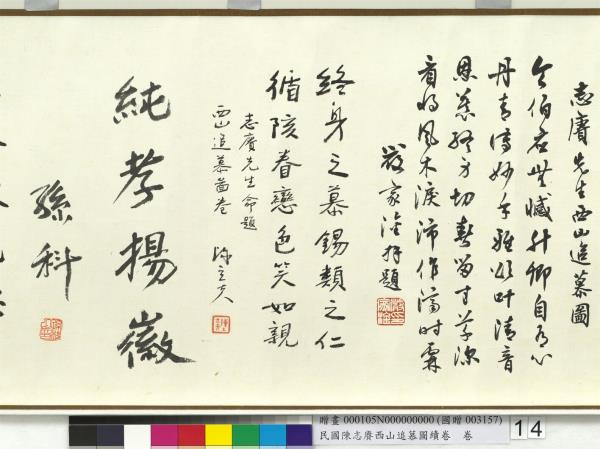 志賡先生西山追慕圖
令伯無憾升卿自心
丹青傳妙手雅頌叶清音
恩切春留寸草深
看將風木淚沛作濟時霖
嚴家淦拜題
終身之慕錫類之仁
循陔眷戀色笑如親
志賡先生命題
西山追慕圖卷 陳立夫
純孝揚徽
孫科
贈畫 000105N000000000 (國贈 003157)
民國陳志賡西山追慕圖續卷 卷
14